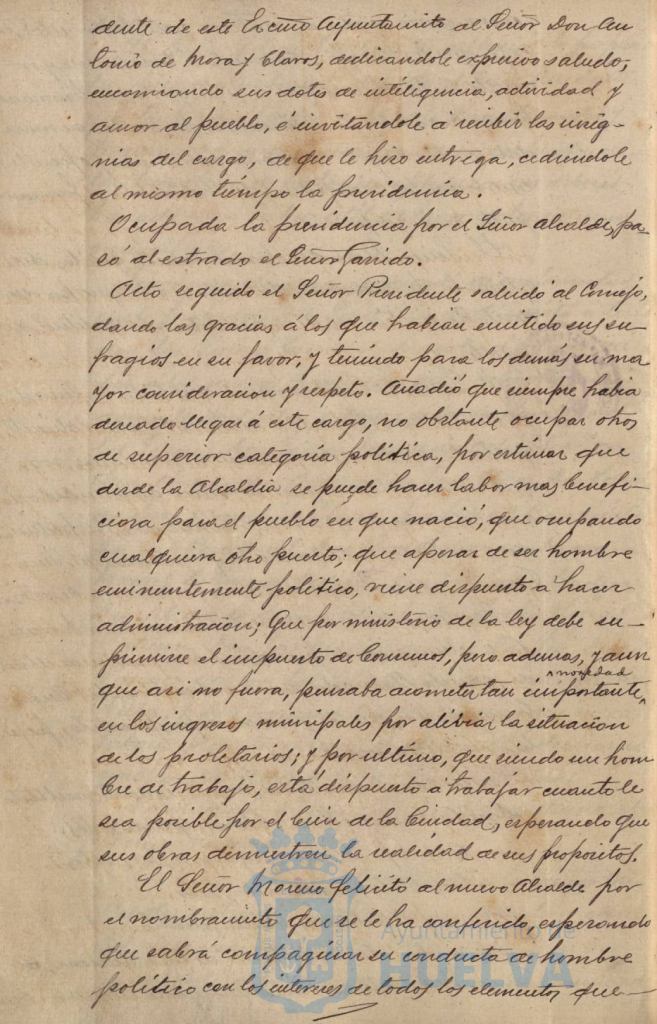 dente de este Excmo Ayuntamiento al Señor Don An
tonio de Mora y Claros, dedicandole expresivo saludo,
encomiando sus dotes de inteligencia, actividad y
amor al pueblo, é invitandole á recibir las insig-
nias del cargo, de que le hizo entrega, cediendole
al mismo tiempo la presidencia.
Ocupada la presidencia por el Señor Alcalde, pa-
só al estrado el Señor Garrido.
Acto seguido el Señor Presidente saludó al Concejo,
dando las gracias á los que habian emitido sus su-
fragios en su favor, y teniendo para los demás su ma
yor consideracion y respeto. Añadió que siempre habia
deseado llegar á este cargo, no obstante ocupar otros
de superior categoria política, por estimar que
desde la Alcaldia se puede hacer labor mas benefi-
ciosa para el pueblo en que nació, que ocupando
cualquiera otro puesto; que apesar de ser hombre
eminentemente politico, viene dispuesto á hacer
administracion; Que por ministerio de la ley debe su-
primirse el impuesto de Consumos, pero ademas, y aun
que asi no fuera, pensaba acometer tan importante novedad
en los ingresos municipales por aliviar la situacion
de los proletarios; y por ultimo, que siendo un hom
bre de trabajo, está dispuesto á trabajar cuanto le
sea posible por el bien de la Ciudad, esperando que
sus obras demuestren la realidad de sus propositos.
El Señor Moreno felicitó al nuevo Alcalde por
el nombramiento que se le ha conferido, esperando
que sabrá compaginar su conducta de hombre
político con los intereses de todos los elementos que
Ayuntamiento de
HUELVA